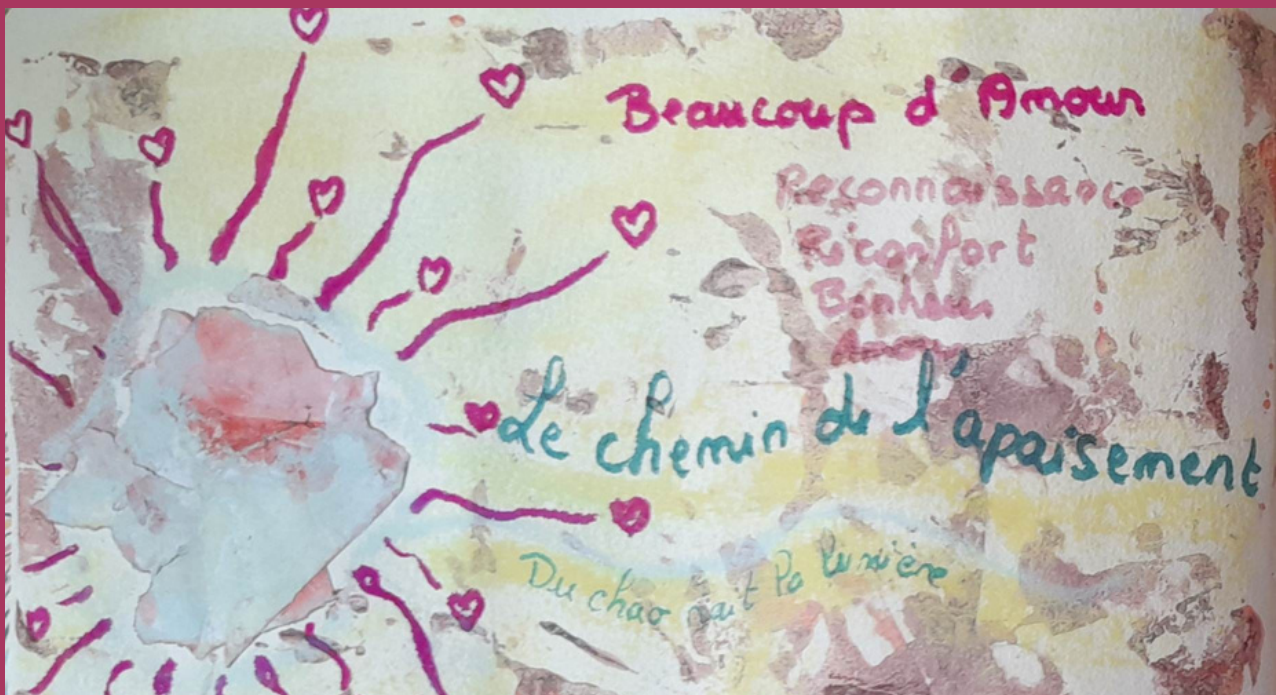 Beaucoup d'Amour
Reconnaissance
Réconfort
Bonheur
Amour
Le chemin de l'apaisement
Du chao nait la lumière